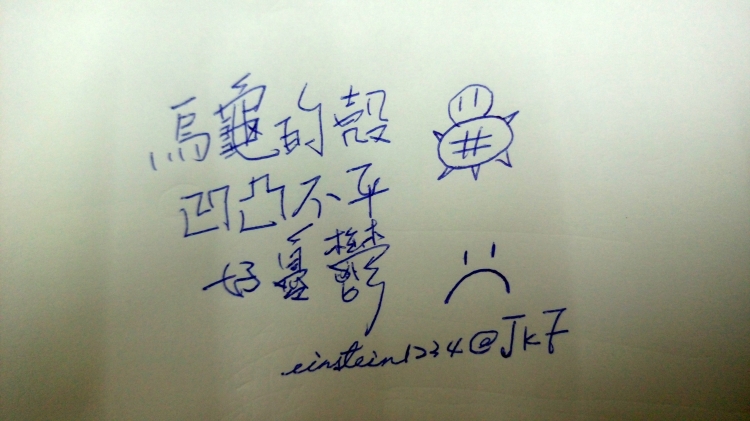 烏龜的殼
凹凸不平
好憂鬱
einstein1234@JkF